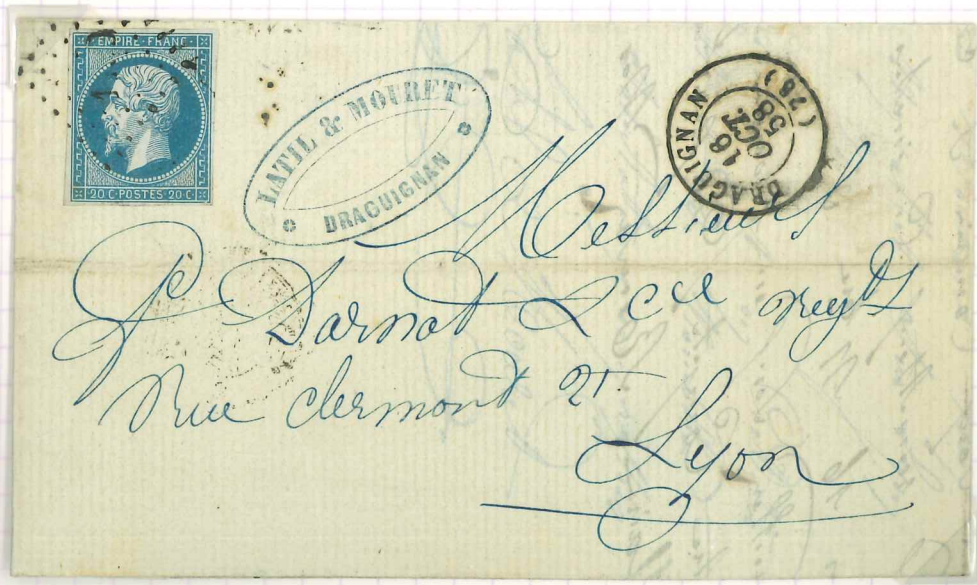 EMPIRE FRANC
20 C POSTES 20 C
LATIL & MOURET
DRAGUIGNAN
DRAGUIGNAN
16
OCT
58
(78)
Messieurs
Darnat & Cie Negts
Rue Clermont
Lyon